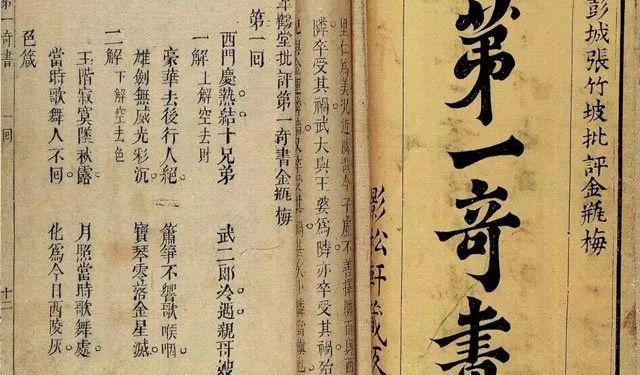 彭城張竹坡批評金瓶梅
第一奇書
影松軒藏
里仁為美況近隣哉今子虛不善擇隣而與西
隣卒受其禍武大與王婆為隣亦卒受其禍殆
鶴堂批評第一奇書金瓶梅
第一回
西門慶熱結十兄弟 武二郎冷遇親哥嫂
一解 上解空去財
豪華去後行人絕。 簫箏不響歌喉咽。
雄劍無威光彩沉。 寶琴零落金星滅。
二解 下解空去色
玉階寂寞墜秋露。 月照當時歌舞處。
當時歌舞人不回。 化為今日西陵灰。
色箴
第一奇書 一回 十二